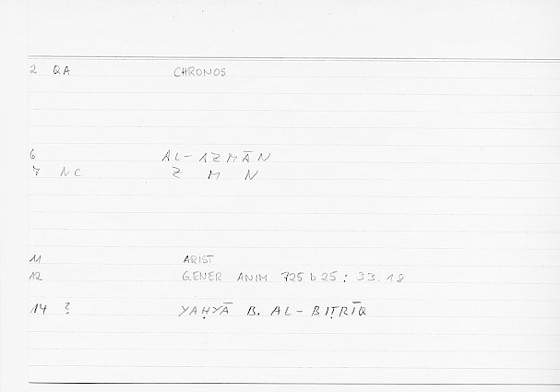 2 QA CHRONOS
6 AL-AZMĀN
7 NC Z M N
11 ARIST
12 GENER ANIM 725 b 25 : 33.18
14 ? YAḤYĀ B. AL-BIṬRĪQ